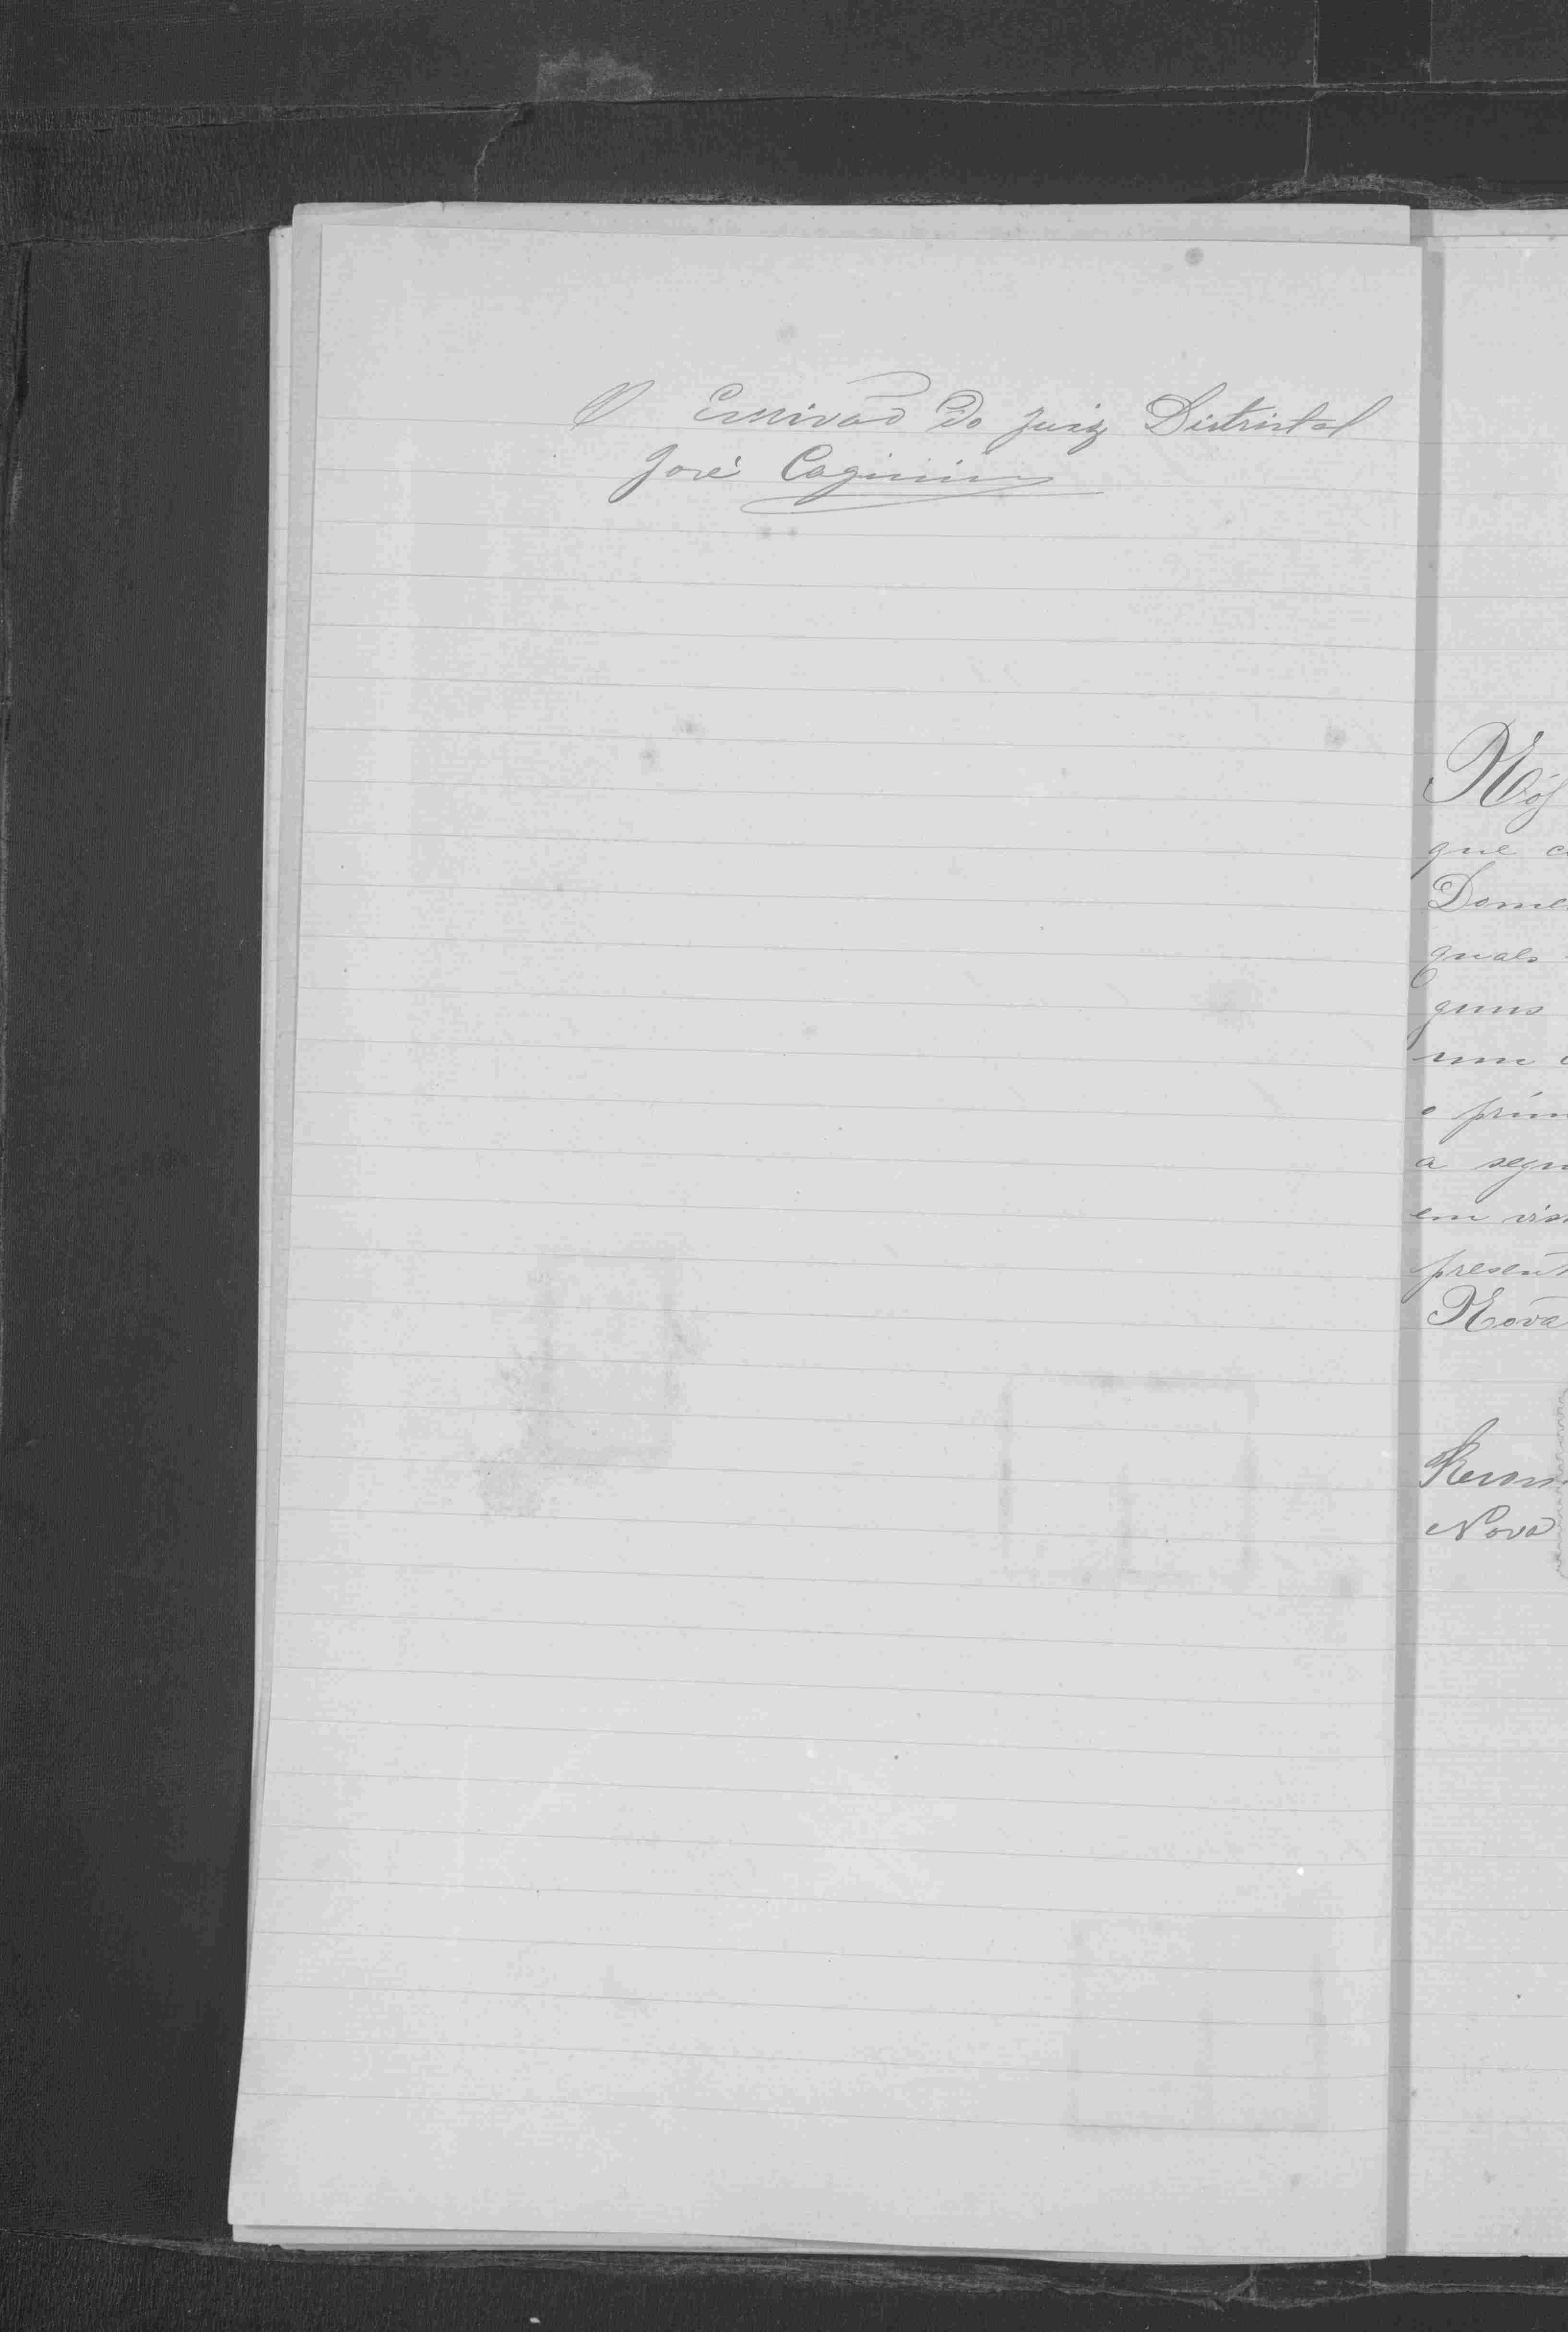 O Escrivão do Juiz Distrital
José
Nós
que
Dome
quals
guns
um
o prim
a segu
em vis
present
Nova
Nova